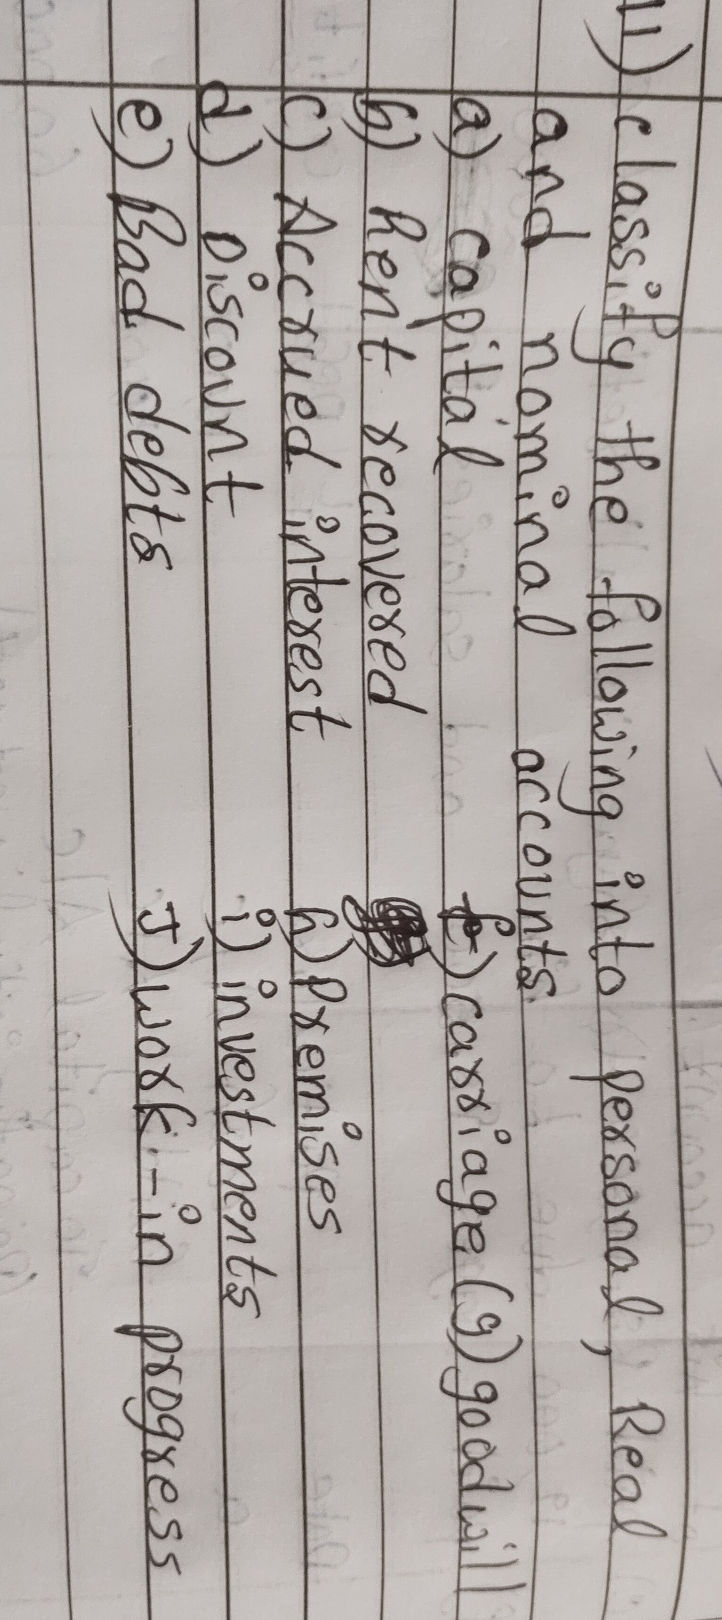 11) classify the following into personal, Real
and nominal accounts
a) capital f) carriage (g) goodwill
b) Rent recovered
c) Accrued interest h) Premises
d) Discount i) investments
e) Bad debts J) work-in progress